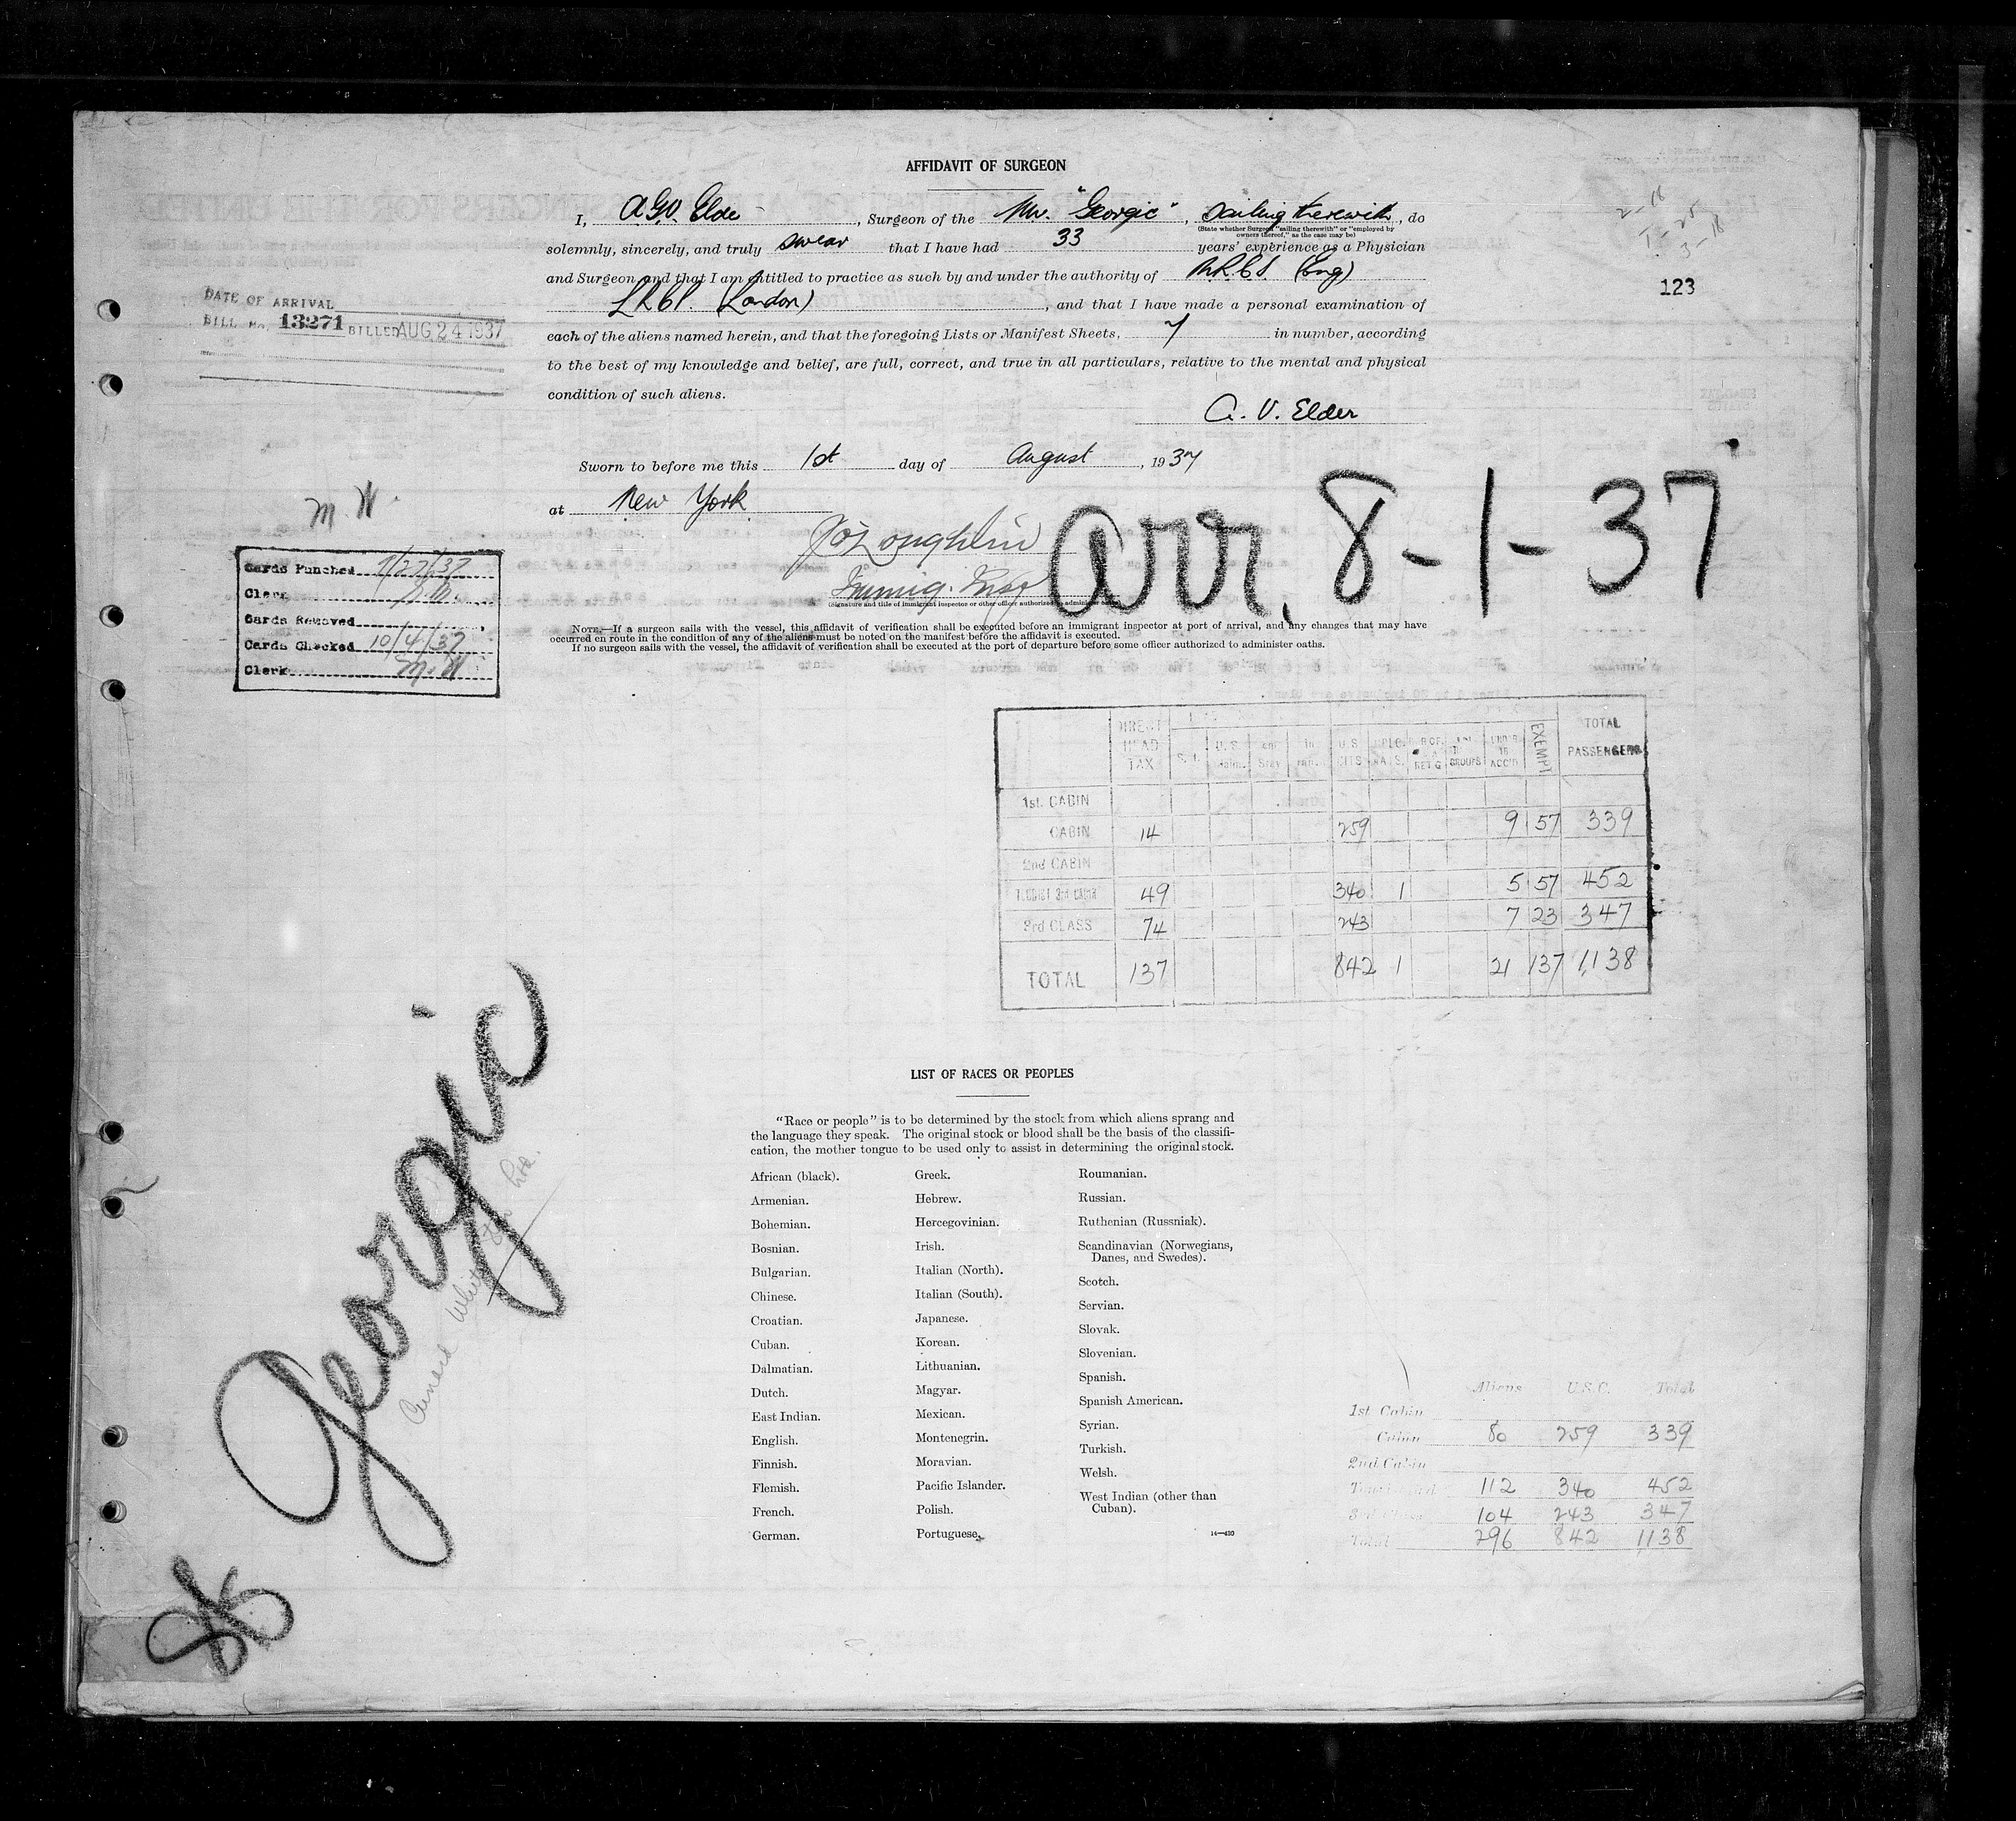 AFFIDAVIT OF SURGEON
I, A.G.V. Elde , Surgeon of the Mv. "Georgic" , Sailing therewith , do
(State whether Surgeon "sailing therewith" or "employed by
owners thereof," as the case may be)
solemnly, sincerely, and truly swear that I have had 33 years' experience as a Physician
and Surgeon and that I am entitled to practice as such by and under the authority of M.R.C.S. (Eng)
L.R.C.P. (London) , and that I have made a personal examination of
each of the aliens named herein, and that the foregoing Lists or Manifest Sheets, 7 in number, according
to the best of my knowledge and belief, are full, correct, and true in all particulars, relative to the mental and physical
condition of such aliens.
A. V. Elder
Sworn to before me this 1st day of August , 1937
at New York
J O'Loughlin
Immig. Insp
(Signature and title of immigrant inspector or other officer authorized to administer
NOTE.—If a surgeon sails with the vessel, this affidavit of verification shall be executed before an immigrant inspector at port of arrival, and any changes that may have
occurred en route in the condition of any of the aliens must be noted on the manifest before the affidavit is executed.
If no surgeon sails with the vessel, the affidavit of verification shall be executed at the port of departure before some officer authorized to administer oaths.
2-18
1-25
3-18
123
DATE OF ARRIVAL
BILL No. 13271 BILLED AUG 24 1937
arr, 8-1-37
M. W.
Cards Punched 9/27/37
Clerk
Cards Removed
Cards Checked 10/4/37
Clerk M. W
DIRECT HEAD TAX S. I. U.S. U.S. CITS EXEMPT TOTAL PASSENGERS
1st. CABIN
CABIN 14 259 9 57 339
2nd CABIN
TOURIST 3rd CABIN 49 340 1 5 57 452
3rd CLASS 74 243 7 23 347
TOTAL 137 842 1 21 137 1,138
Georgic
Cunard White Star Line.
LIST OF RACES OR PEOPLES
"Race or people" is to be determined by the stock from which aliens sprang and
the language they speak. The original stock or blood shall be the basis of the classifi-
cation, the mother tongue to be used only to assist in determining the original stock.
African (black).
Armenian.
Bohemian.
Bosnian.
Bulgarian.
Chinese.
Croatian.
Cuban.
Dalmatian.
Dutch.
East Indian.
English.
Finnish.
Flemish.
French.
German.
Greek.
Hebrew.
Hercegovinian.
Irish.
Italian (North).
Italian (South).
Japanese.
Korean.
Lithuanian.
Magyar.
Mexican.
Montenegrin.
Moravian.
Pacific Islander.
Polish.
Portuguese.
Roumanian.
Russian.
Ruthenian (Russniak).
Scandinavian (Norwegians,
Danes, and Swedes).
Scotch.
Servian.
Slovak.
Slovenian.
Spanish.
Spanish American.
Syrian.
Turkish.
Welsh.
West Indian (other than
Cuban).
14—430
Aliens U.S.C. Total
1st Cabin
Cabin 80 259 339
2nd Cabin
112 340 452
3rd Class 104 243 347
Total 296 842 1138